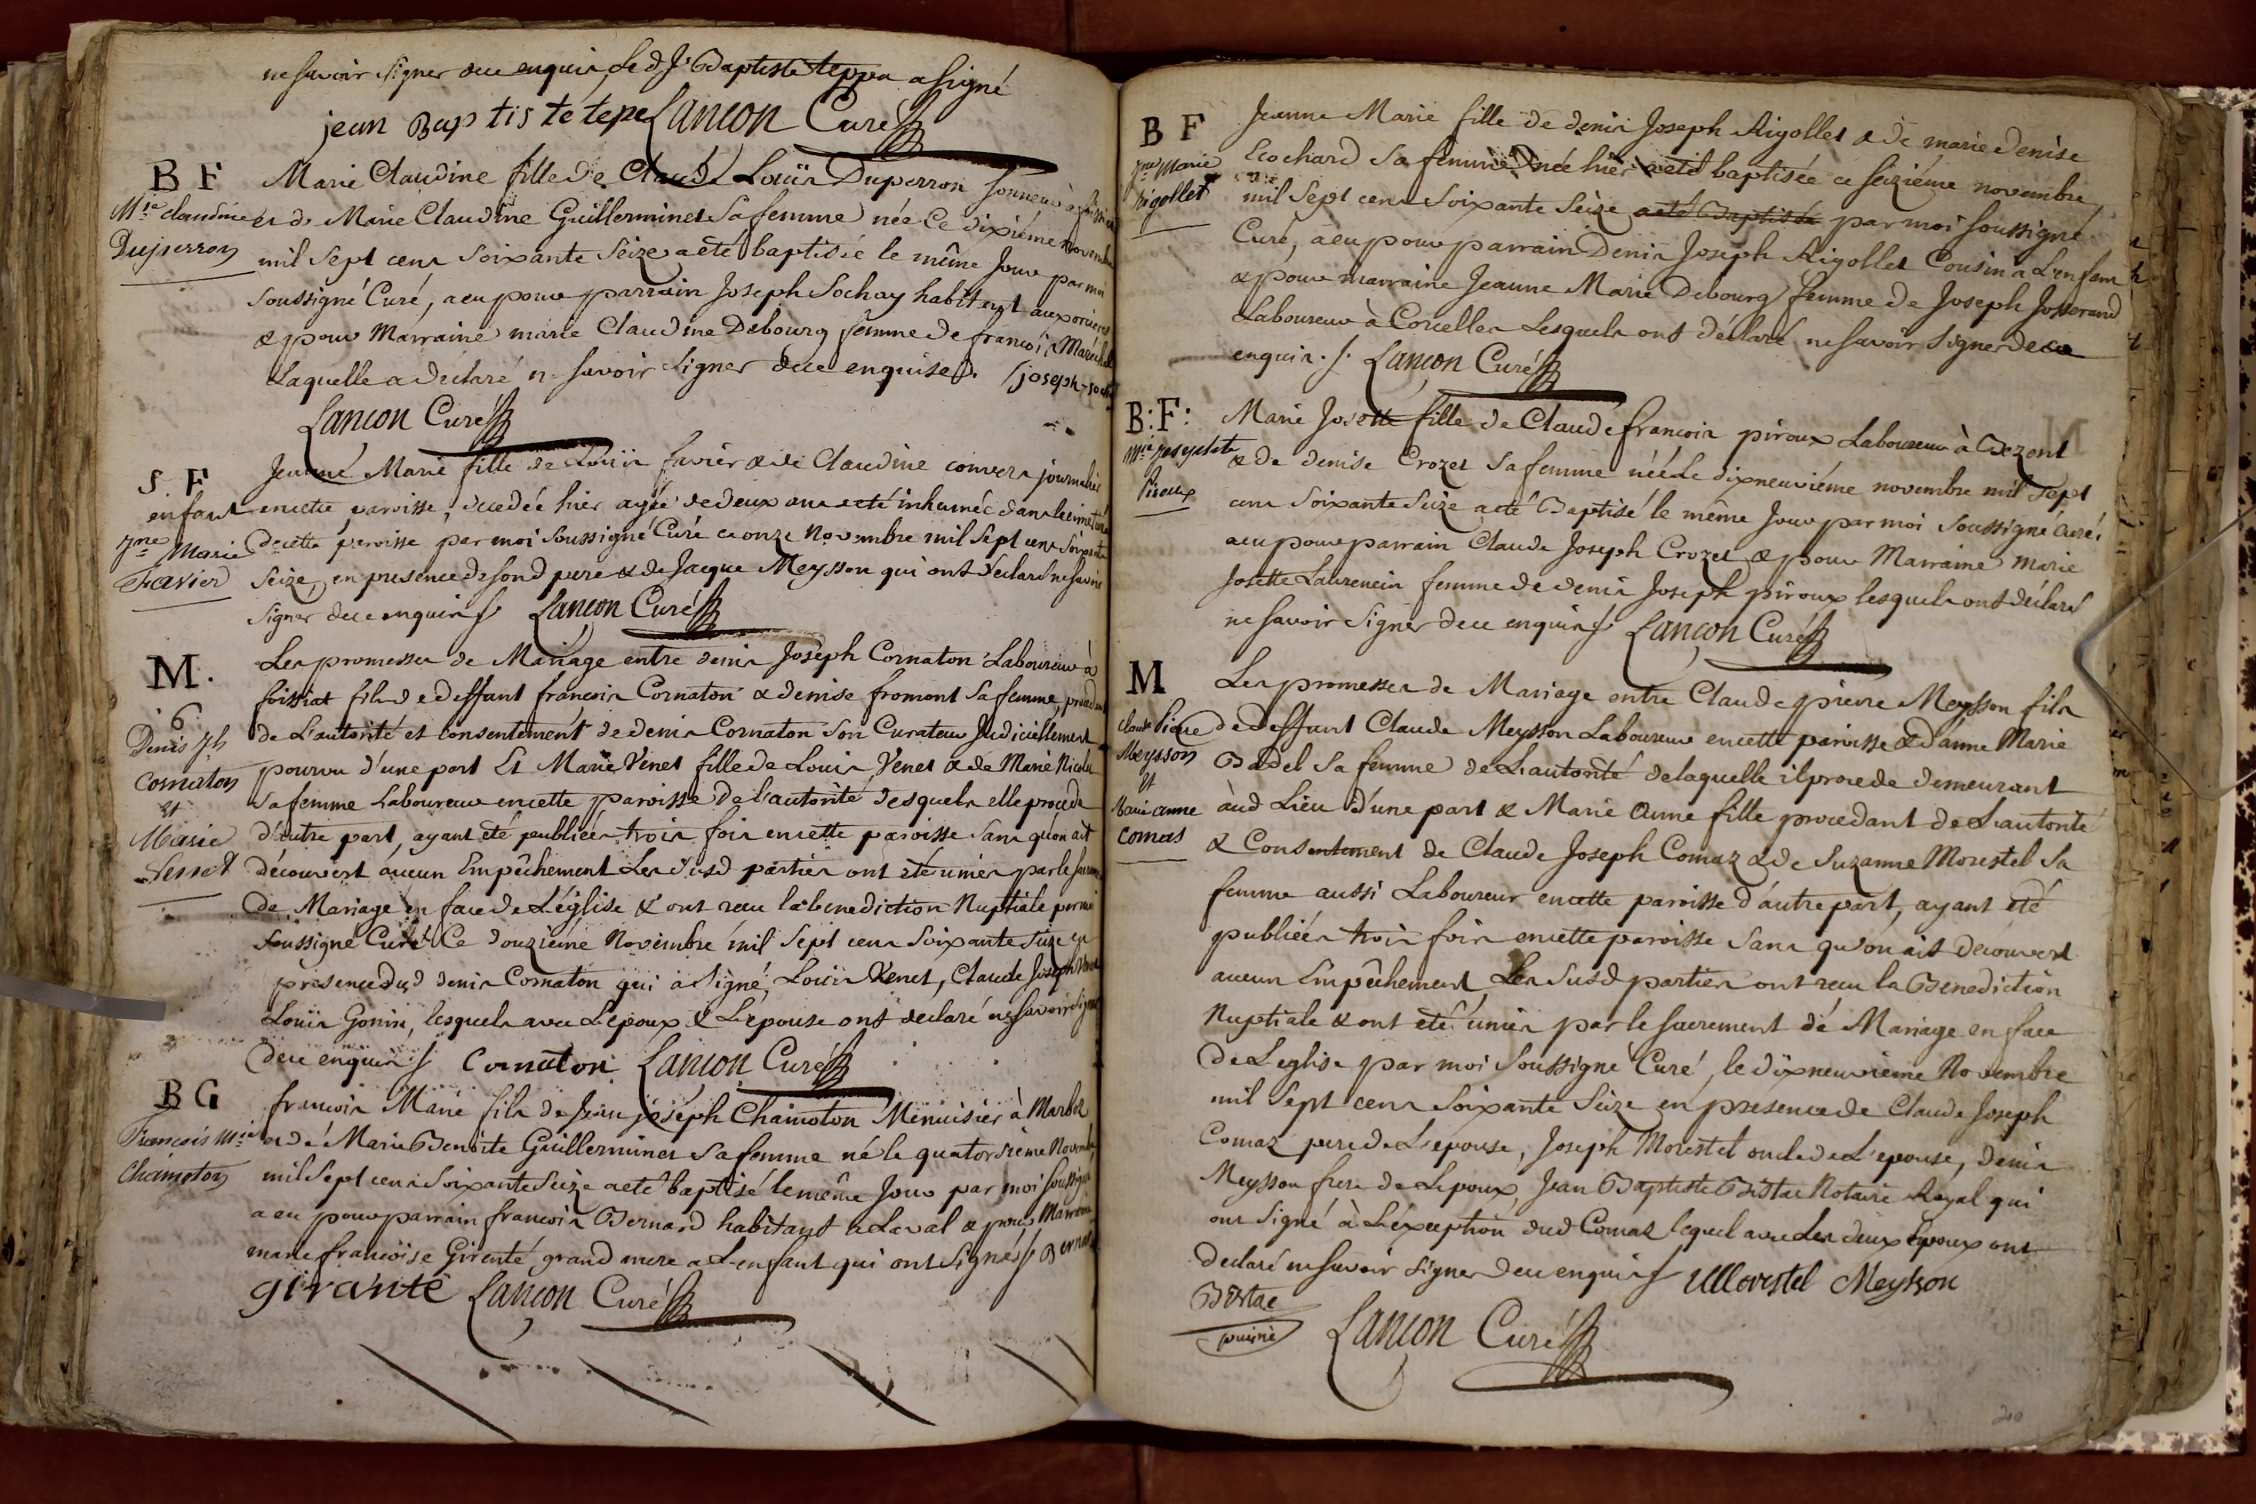 ne savoir signer de ce enquis, Led J. Baptiste teppa a signé
jean Baptiste tepe Lançon Curé
B F
M.ie claudine
Duperron
Marie Claudine fille de Claude Louis Duperron sonneur à
et de Marie Claudine Guillerminet sa femme née Ce dixiéme novembre
mil Sept cens Soixante Seize a èté baptisée le même Jour par moi
Soussigné Curé, a eu pour parrain Joseph Sochay habitant aux
& pour Marraine marie Claudine Debourg femme de françois Maréchal
Laquelle a déclaré ne savoir signer de ce enquise joseph
Lançon Curé
S. F
enfant
J.ne Marie
Favier
Jeanne Marie fille de Louis favier & de Claudine convers journalier
en cette paroisse, decedée hier agée de deux ans a eté inhumée dans le cimetiere
de cette paroisse par moi soussigné Curé ce onze Novembre mil Sept cens Soixante
Seize, en presence de sond pere & de Jacque Meysson qui ont déclaré ne savoir
signer de ce enquis Lançon Curé
M.
6
Denis Jh
Cornaton
et
Marie
Venet
Les promesses de Mariage entre denis Joseph Cornaton Laboureur à
foissiat fils de deffunt francois Cornaton & denise fromont sa femme, procedant
de L'autorité et consentement de denis Cornaton son Curateur Judiciellement
pourvu d'une part Et Marie Venet fille de Louis Venet & de Marie Nicolas
sa femme Laboureur en cette paroisse de l'autorité desquels elle procede
d'autre part, ayant été publiées trois fois en cette paroisse sans qu'on ait
découvert aucun Empêchement Les susd parties ont eté unies par le sacrement
de Mariage en face de L'église & ont recu la benediction Nuptiale par moi
soussigné Curé Ce douzieme Novembre mil Sept cens Soixante Seize en
presence dud denis Cornaton qui a signé, Louis Venet, Claude Joseph Venet
Louis Gonin, lesquels avec L'epoux & L'epouse ont declaré ne savoir signer
de ce enquis Cornaton Lançon Curé
B G
Francois M.ie
Chamoton
francois Marie fils de Jean joseph Chamoton Menuisier à Marboz
et de Marie Benoite Guillerminet sa femme né le quatorsieme Novembre
mil Sept cens Soixante Seize a eté baptisé le même Jour par moi soussigné
a eu pour parrain francois Bernard habitant a Laval & pour Marraine
marie francoise Girenté grand mere a L'enfant qui ont signés Bernard
girante Lançon Curé
B F
J.ne Marie
Rigollet
Jeanne Marie fille de denis Joseph Rigollet & de marie denise
Ecochard sa femme née hier a eté baptisée ce seiziéme novembre
mil Sept cens Soixante Seize a eté Baptisée par moi soussigné
Curé, a eu pour parrain Denis Joseph Rigollet Cousin a L'enfant
& pour marraine Jeanne Marie Debourg femme de Joseph Josserand
Laboureur à Corcelles Lesquels ont déclaré ne savoir signer de ce
enquis. Lançon Curé
B: F:
M.ie josephte
Piroux
Marie Josette fille de Claude francois piroux Laboureur à Bezont
& de denise Crozet sa femme née Le dixneuviéme novembre mil Sept
cens Soixante Seize a eté Baptisé le même Jour par moi Soussigné Curé,
a eu pour parrain Claude Joseph Crozet & pour Marraine Marie
Josette Laurencin femme de denis Joseph piroux lesquels ont déclaré
ne savoir signer de ce enquis Lançon Curé
M
Claude Pierre
Meysson
Et
Marie anne
Comas
Les promesses de Mariage entre Claude pierre Meysson fils
de deffunt Claude Meysson Laboureur en cette paroisse & d'anne Marie
Badel sa femme de L'autorité de laquelle il procede demeurant
aud Lieu d'une part & Marie Anne fille procedant de L'autorité
& Consentement de Claude Joseph Comaz & de Suzanne Morestel sa
femme aussi Laboureur en cette paroisse d'autre part, ayant eté
publiées trois fois en cette paroisse sans qu'on ait decouvert
aucun Empêchement Les susd parties ont recu la Benediction
Nuptiale & ont eté unies par le sacrement de Mariage en face
de L'eglise par moi Soussigné Curé, le dixneuvieme Novembre
mil Sept cens Soixante Seize en presence de Claude Joseph
Comaz pere de L'epouse, Joseph Morestel oncle de L'epouse, denis
Meysson frere de L'epoux, Jean Baptiste Notaire Royal qui
ont signé à L'exception dud Comaz lequel avec Les deux Epoux ont
declaré ne savoir signer de ce enquis Morestel Meysson
puiné
Lançon Curé